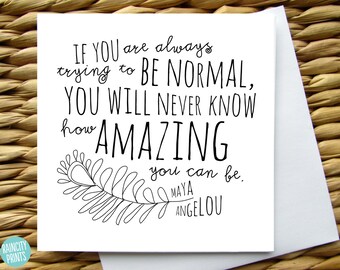 IF YOU are always
trying to BE NORMAL,
YOU WILL NEVER KNOW
how AMAZING
you can be.
MAYA
ANGELOU
RAINCITY
PRINTS